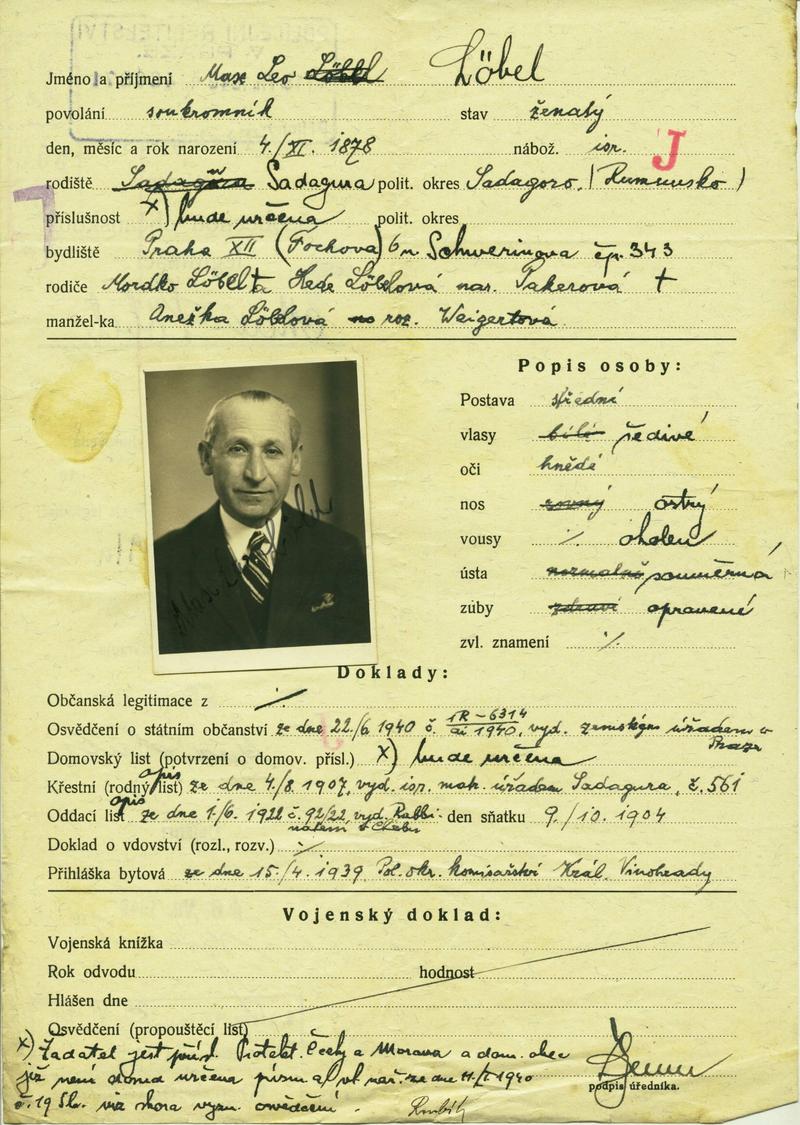 Jméno a příjmení Max Leo Löbl Löbel
povolání soukromník stav ženatý
den, měsíc a rok narození 4./XI. 1878 nábož. isr. J
rodiště Sadagura polit. okres Sadagoro. (Rumunsko)
příslušnost x) bude určena polit. okres
bydliště Praha XII (Fochova) Schwerinova čp. 343
rodiče Mordko Löbl † a Hede Löblová nar. Pakerová †
manžel-ka Anežka Löblová roz. Weigertová
Popis osoby:
Postava střední
vlasy bílé šedivé
oči hnědé
nos rovný ostrý
vousy ·/. oholen
ústa normalné souměrná
zuby zdravé opravené
zvl. znamení ·/.
Doklady:
Občanská legitimace z ·/.
Osvědčení o státním občanství ze dne 22./6 1940 č. IR-6314 ai 1940, vyd. zemským úřadem v Praze
Domovský list (potvrzení o domov. přísl.) x) bude určena
Křestní (rodný opis list) ze dne 4./8. 1907, vyd. isr. mat. úřadem Sadagura, č. 561
Oddací list opis ze dne 1./6. 1922 č. 92/22, vyd. Rabbi- den sňatku 9./10. 1904
nátem v Chebu
Doklad o vdovství (rozl., rozv.) ·/.
Přihláška bytová ze dne 15./4. 1939. Pol. okr. komisařství Král. Vinohrady
Vojenský doklad:
Vojenská knížka
Rok odvodu hodnost
Hlášen dne
Osvědčení (propouštěcí list)
x) Žadatel jest přísl. Protekt. Čechy a Morava a dom. obec
již není určena vl. nař. ze dne 11./I. 1940
č. 19 Sb. viz skora osvědčení.
podpis úředníka.